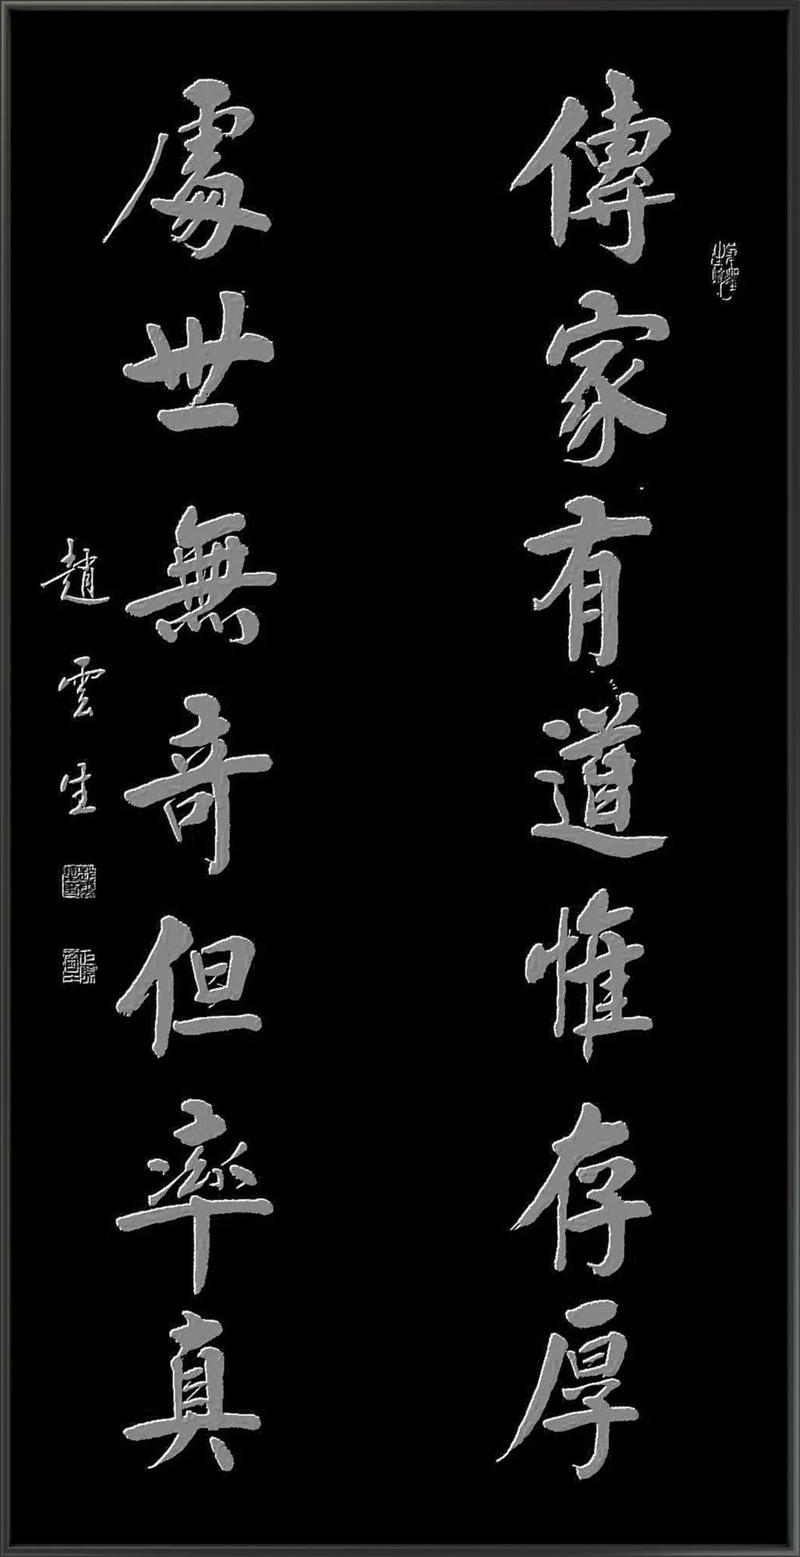 傳家有道惟存厚
處世無奇但率真
趙雲生